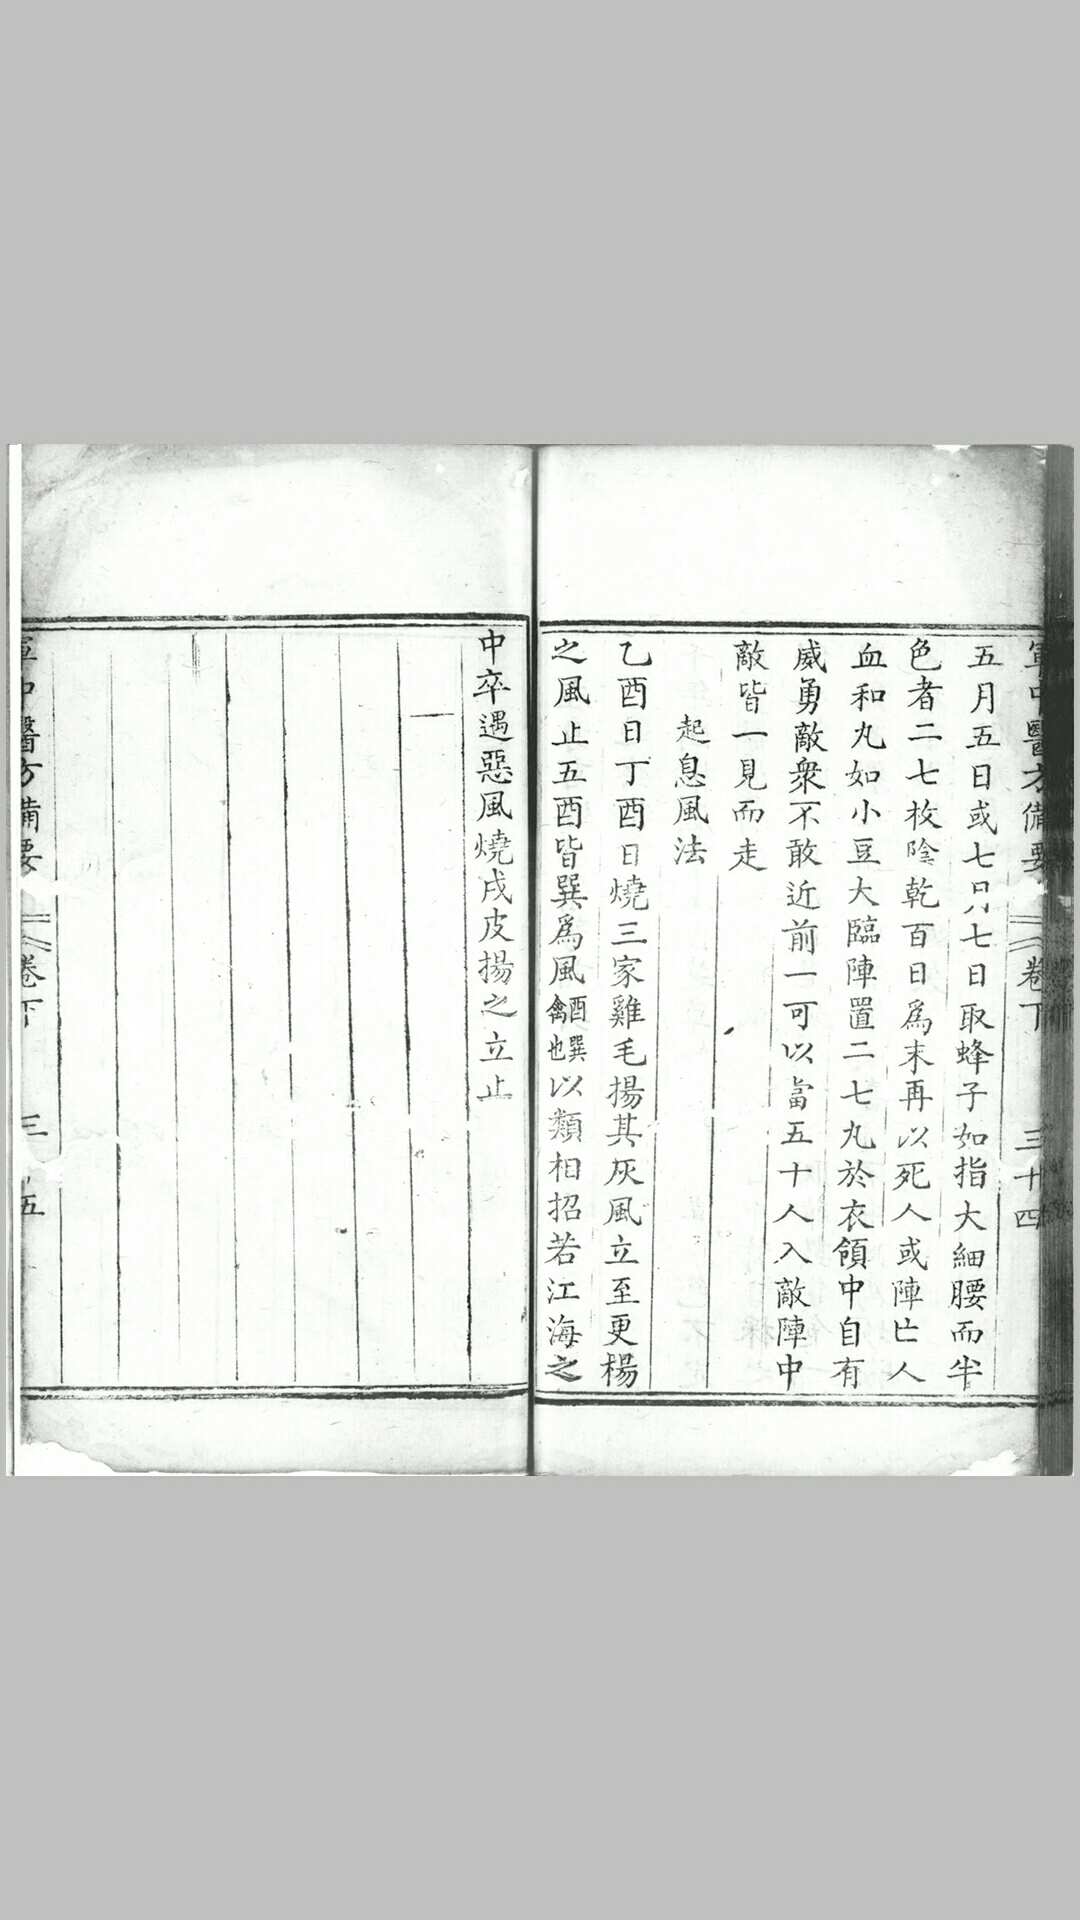 軍中醫方備要 卷下 三十四
五月五日或七月七日取蜂子如指大細腰而半
色者二七枚陰乾百日爲末再以死人或陣亡人
血和丸如小豆大臨陣置二七丸於衣領中自有
威勇敵衆不敢近前一可以當五十人入敵陣中
敵皆一見而走
起息風法
乙酉日丁酉日燒三家雞毛揚其灰風立至更楊
之風止五酉皆巽爲風酉巽禽也以類相招若江海之
中卒遇惡風燒戌皮揚之立止
軍中醫方備要 卷下 三 五